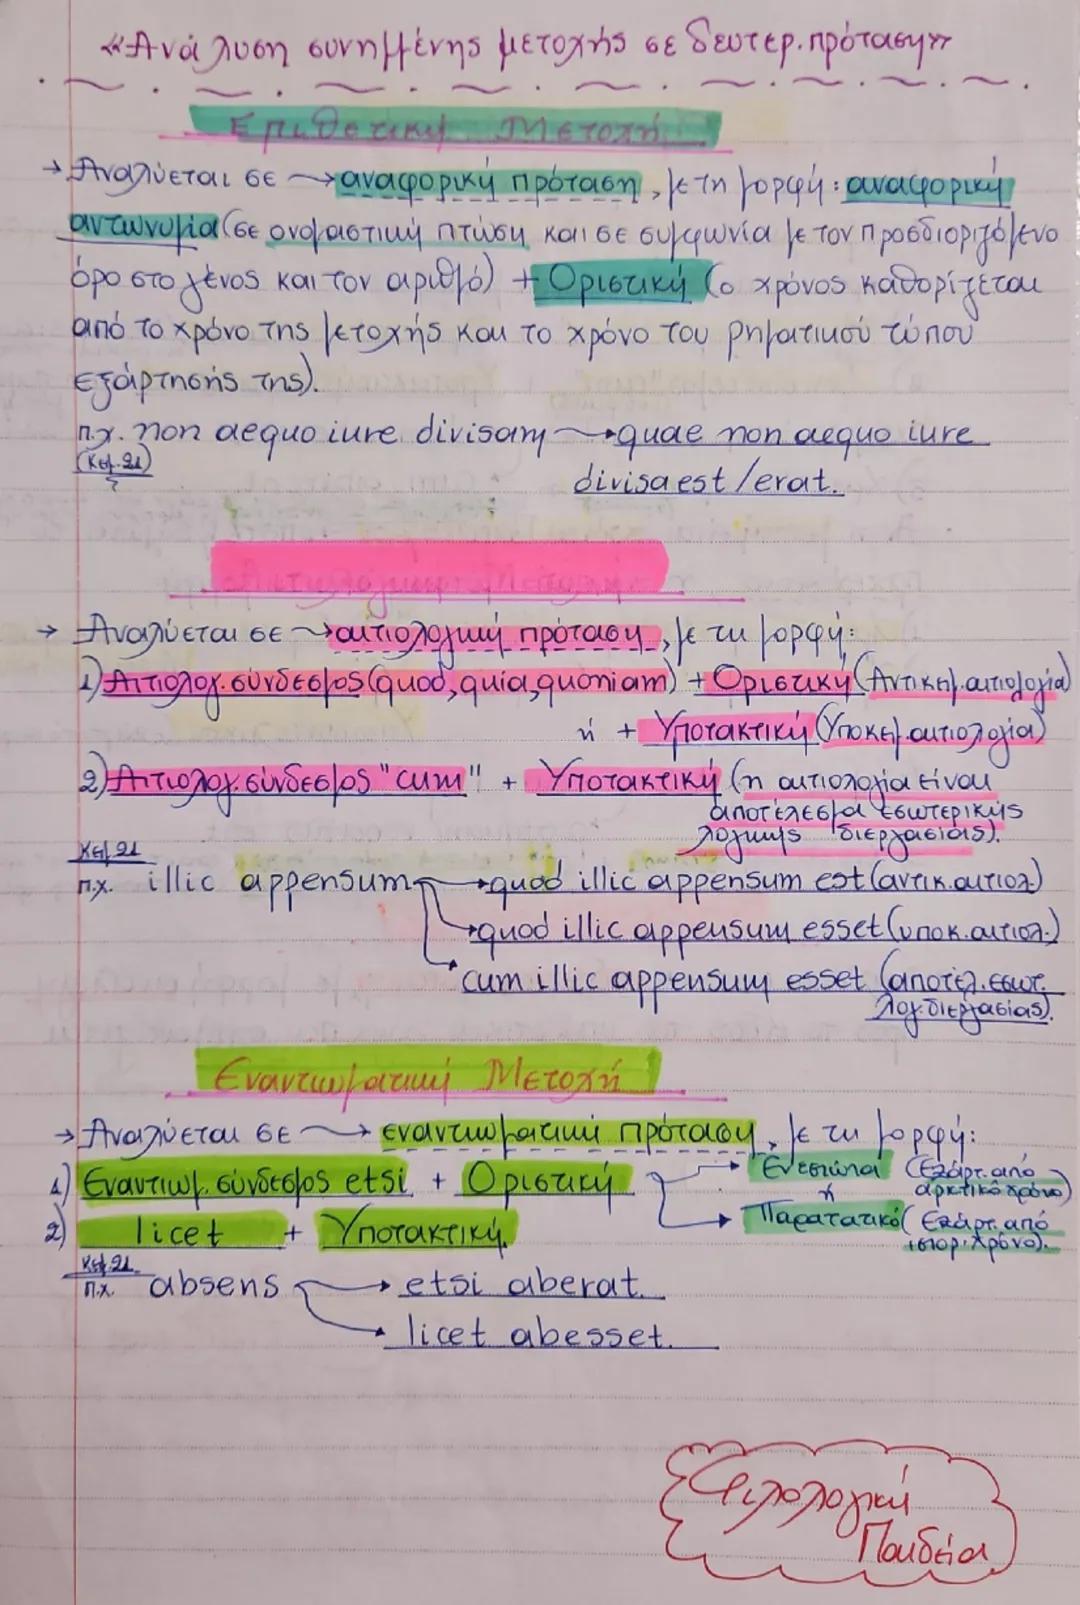 «Ανάλυση συνημμένης μετοχής σε δευτερ. πρόταση»
Επιθετική Μετοχή
→ Αναλύεται σε → αναφορική πρόταση, με τη μορφή: αναφορική
αντωνυμία (σε ονομαστική πτώση και σε συμφωνία με τον προσδιοριζόμενο
όρο στο γένος και τον αριθμό) + Οριστική (ο χρόνος καθορίζεται
από το χρόνο της μετοχής και το χρόνο του ρηματικού τύπου
εξάρτησής της).
π.χ. non aequo iure divisam → quae non aequo iure
(Κεφ. 21)
divisa est/erat.
→ Αναλύεται σε → αιτιολογική πρόταση, με τη μορφή:
1) Αιτιολογ. σύνδεσμος (quod, quia, quoniam) + Οριστική (Αντικειμ. αιτιολογία)
ή + Υποτακτική (Υποκειμ. αιτιολογία)
2) Αιτιολογ. σύνδεσμος "cum" + Υποτακτική (η αιτιολογία είναι
αποτέλεσμα εσωτερικής
λογικής διεργασίας).
Κεφ 21
π.χ. illic appensum → quod illic appensum est (αντικ. αιτιολ)
→ quod illic appensum esset (υποκ. αιτιολ.)
→ cum illic appensum esset (αποτέλ. εσωτ.
λογ. διεργασίας).
Εναντιωματική Μετοχή
→ Αναλύεται σε → εναντιωματική πρόταση, με τη μορφή:
1) Εναντιωμ. σύνδεσμος etsi + Οριστική → Ενεστώτα (Εξάρτ. από
ή αρκτικό χρόνο)
2) licet + Υποτακτική. → Παρατατικό (Εξάρτ. από
ιστορ. χρόνο).
Κεφ. 21
π.χ. absens → etsi aberat.
→ licet abesset.
Φιλολογική
Παιδεία